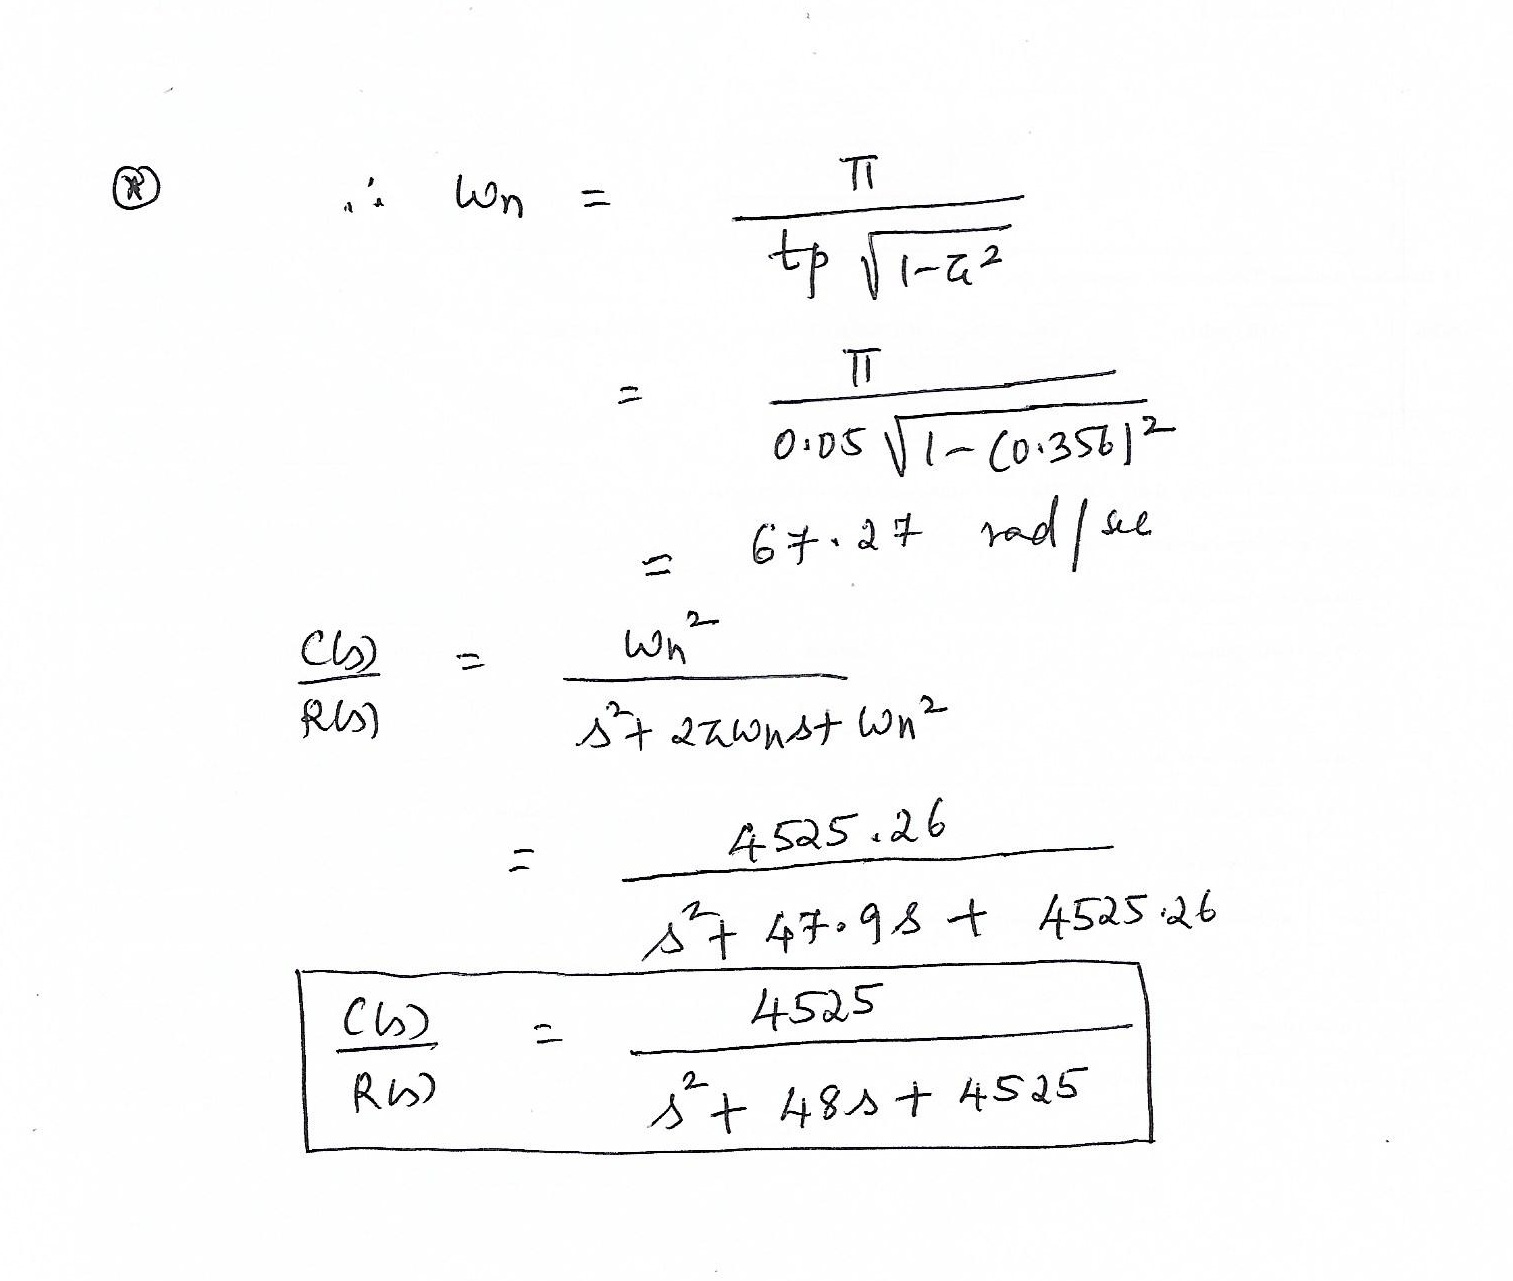 ⊛ ∴ ωn = π / (tp √(1-ζ²))
= π / (0.05 √(1-(0.356)²))
= 67.27 rad/sec
C(s)/R(s) = ωn² / (s²+ 2ζωns+ ωn²)
= 4525.26 / (s²+ 47.9s + 4525.26)
C(s)/R(s) = 4525 / (s²+ 48s+ 4525)